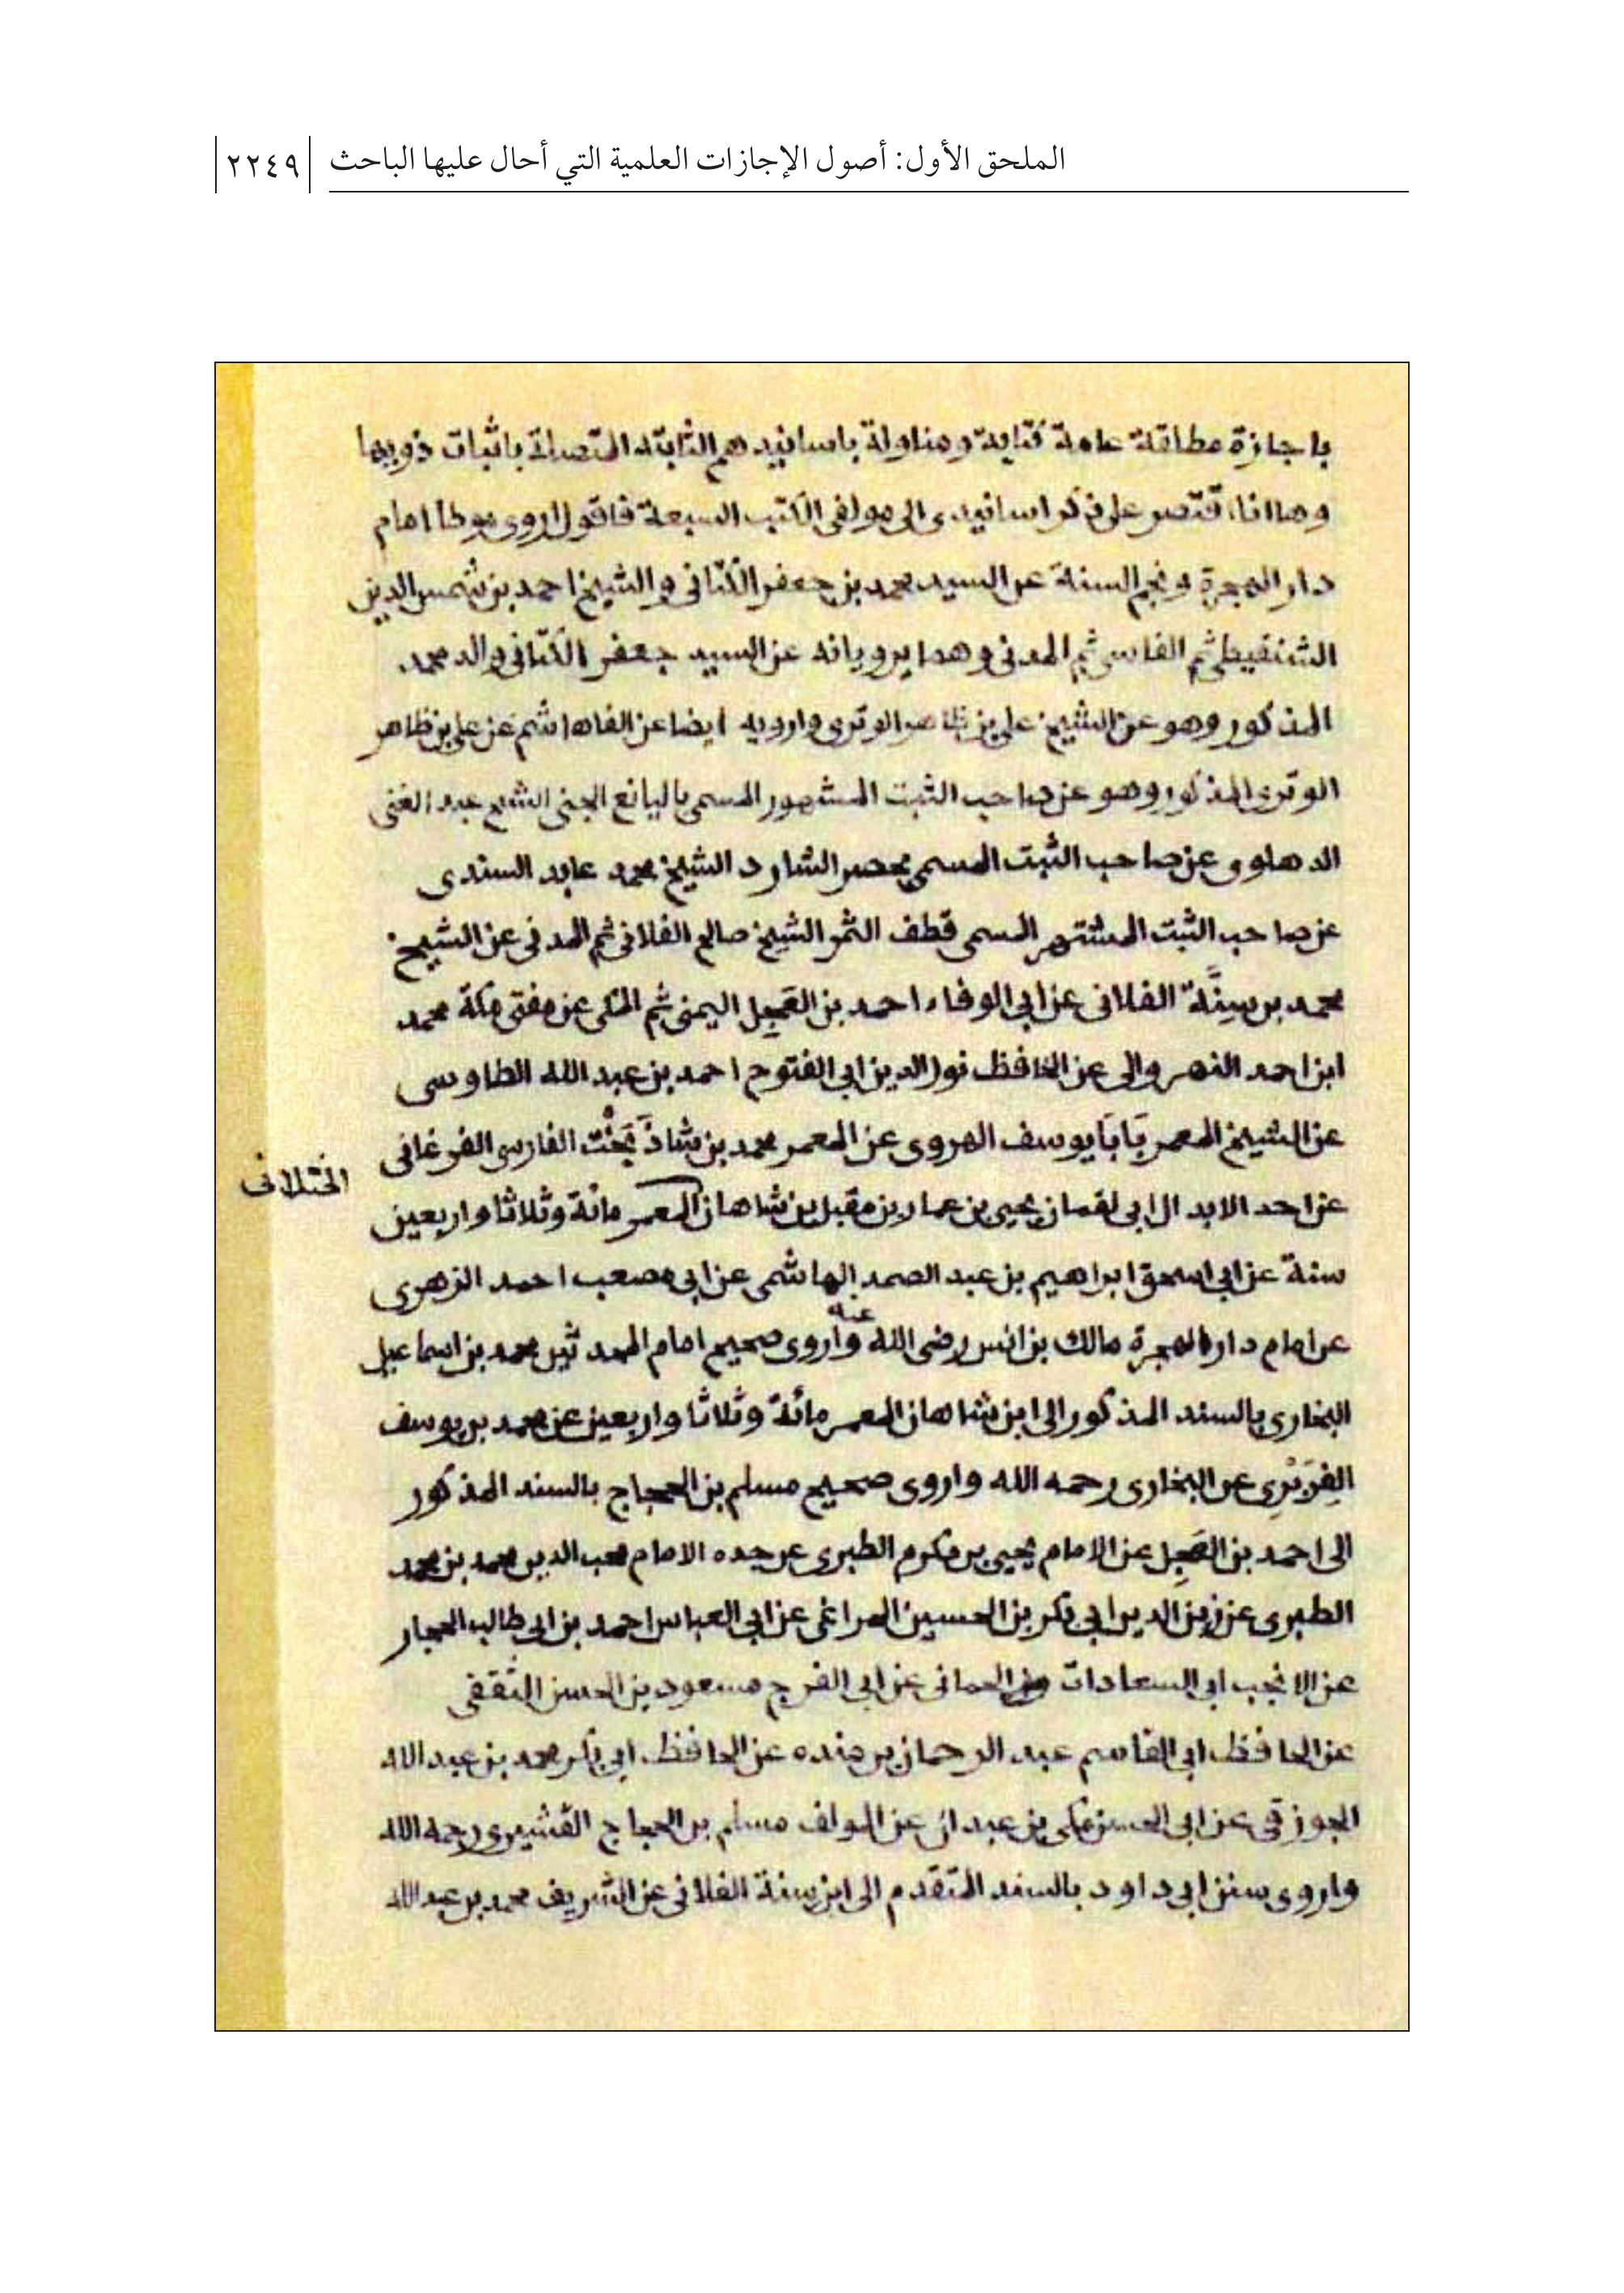 الملحق الأول: أصول الإجازات العلمية التي أحال عليها الباحث
٢٢٤٩
باجازة مطلقة عامة كتابة ومناولة باسانيدهم الثابتة المتصلة باثبات ذويها
وهاانا، قتصر على ذكر اسانيدى الى مولفى الكتب السبعة فاقول اروى موطا امام
دار الهجرة ونجم السنة عن السيد محمد بن جعفر الكتانى والشيخ احمد بن شمس الدين
الشنقيطى ثم الفاسى ثم المدنى وهما يرويانه عن السيد جعفر الكتانى والد محمد
المذكور وهو عن الشيخ على بن ظاهر الوترى وارويه ايضا عن الفاهاشم عن على بن ظاهر
الوترى المذكور وهو عن صاحب الثبت المشهور المسمى باليانع الجنى الشيخ عبد الغنى
الدهلوى عن صاحب الثبت المسمى بحصر الشارد الشيخ محمد عابد السندى
عن صاحب الثبت المشتهر المسمى قطف الثمر الشيخ صالح الفلانى ثم المدنى عن الشيخ
محمد بن سِنَّة الفلانى عن ابى الوفاء احمد بن العَجِل اليمنى ثم المكى عن مفتى مكة محمد
ابن احمد النهروالى عن الحافظ نور الدين ابى الفتوح احمد بن عبد الله الطاوسى
عن الشيخ المعمر بَابَا يوسف الهروى عن المعمر محمد بن شاذَ بَخْت الفارسى الفرغانى
الختلانى
عن احد الابدال ابى لقمان يحيى بن عمار بن مقبل بن شاهان المعمر مائة وثلاثا واربعين
سنة عن ابى اسحق ابراهيم بن عبد الصمد الهاشمى عن ابى مصعب احمد الزهرى
عن امام دار الهجرة مالك بن انس رضى الله عنه واروى صحيح امام المحدثين محمد بن اسماعيل
البخارى بالسند المذكور الى ابن شاهان المعمر مائة وثلاثا واربعين عن محمد بن يوسف
الفِرَبْرِى عن البخارى رحمه الله واروى صحيح مسلم بن الحجاج بالسند المذكور
الى احمد بن العَجِل عن الامام يحيى بن مكرم الطبرى عن جده الامام محب الدين محمد بن محمد
الطبرى عن زين الدين ابى بكر بن الحسين المراغى عن ابى العباس احمد بن ابى طالب الحجار
عن الانجب ابى السعادات الحمانى عن ابى الفرج مسعود بن الحسن الثقفى
عن الحافظ ابى القاسم عبد الرحمان بن منده عن الحافظ ابى بكر محمد بن عبد الله
الجوزقى عن ابى الحسن مكى بن عبدان عن المولف مسلم بن الحجاج القشيرى رحمه الله
واروى سنن ابى داود بالسند المتقدم الى ابن سنة الفلانى عن الشريف محمد بن عبد الله